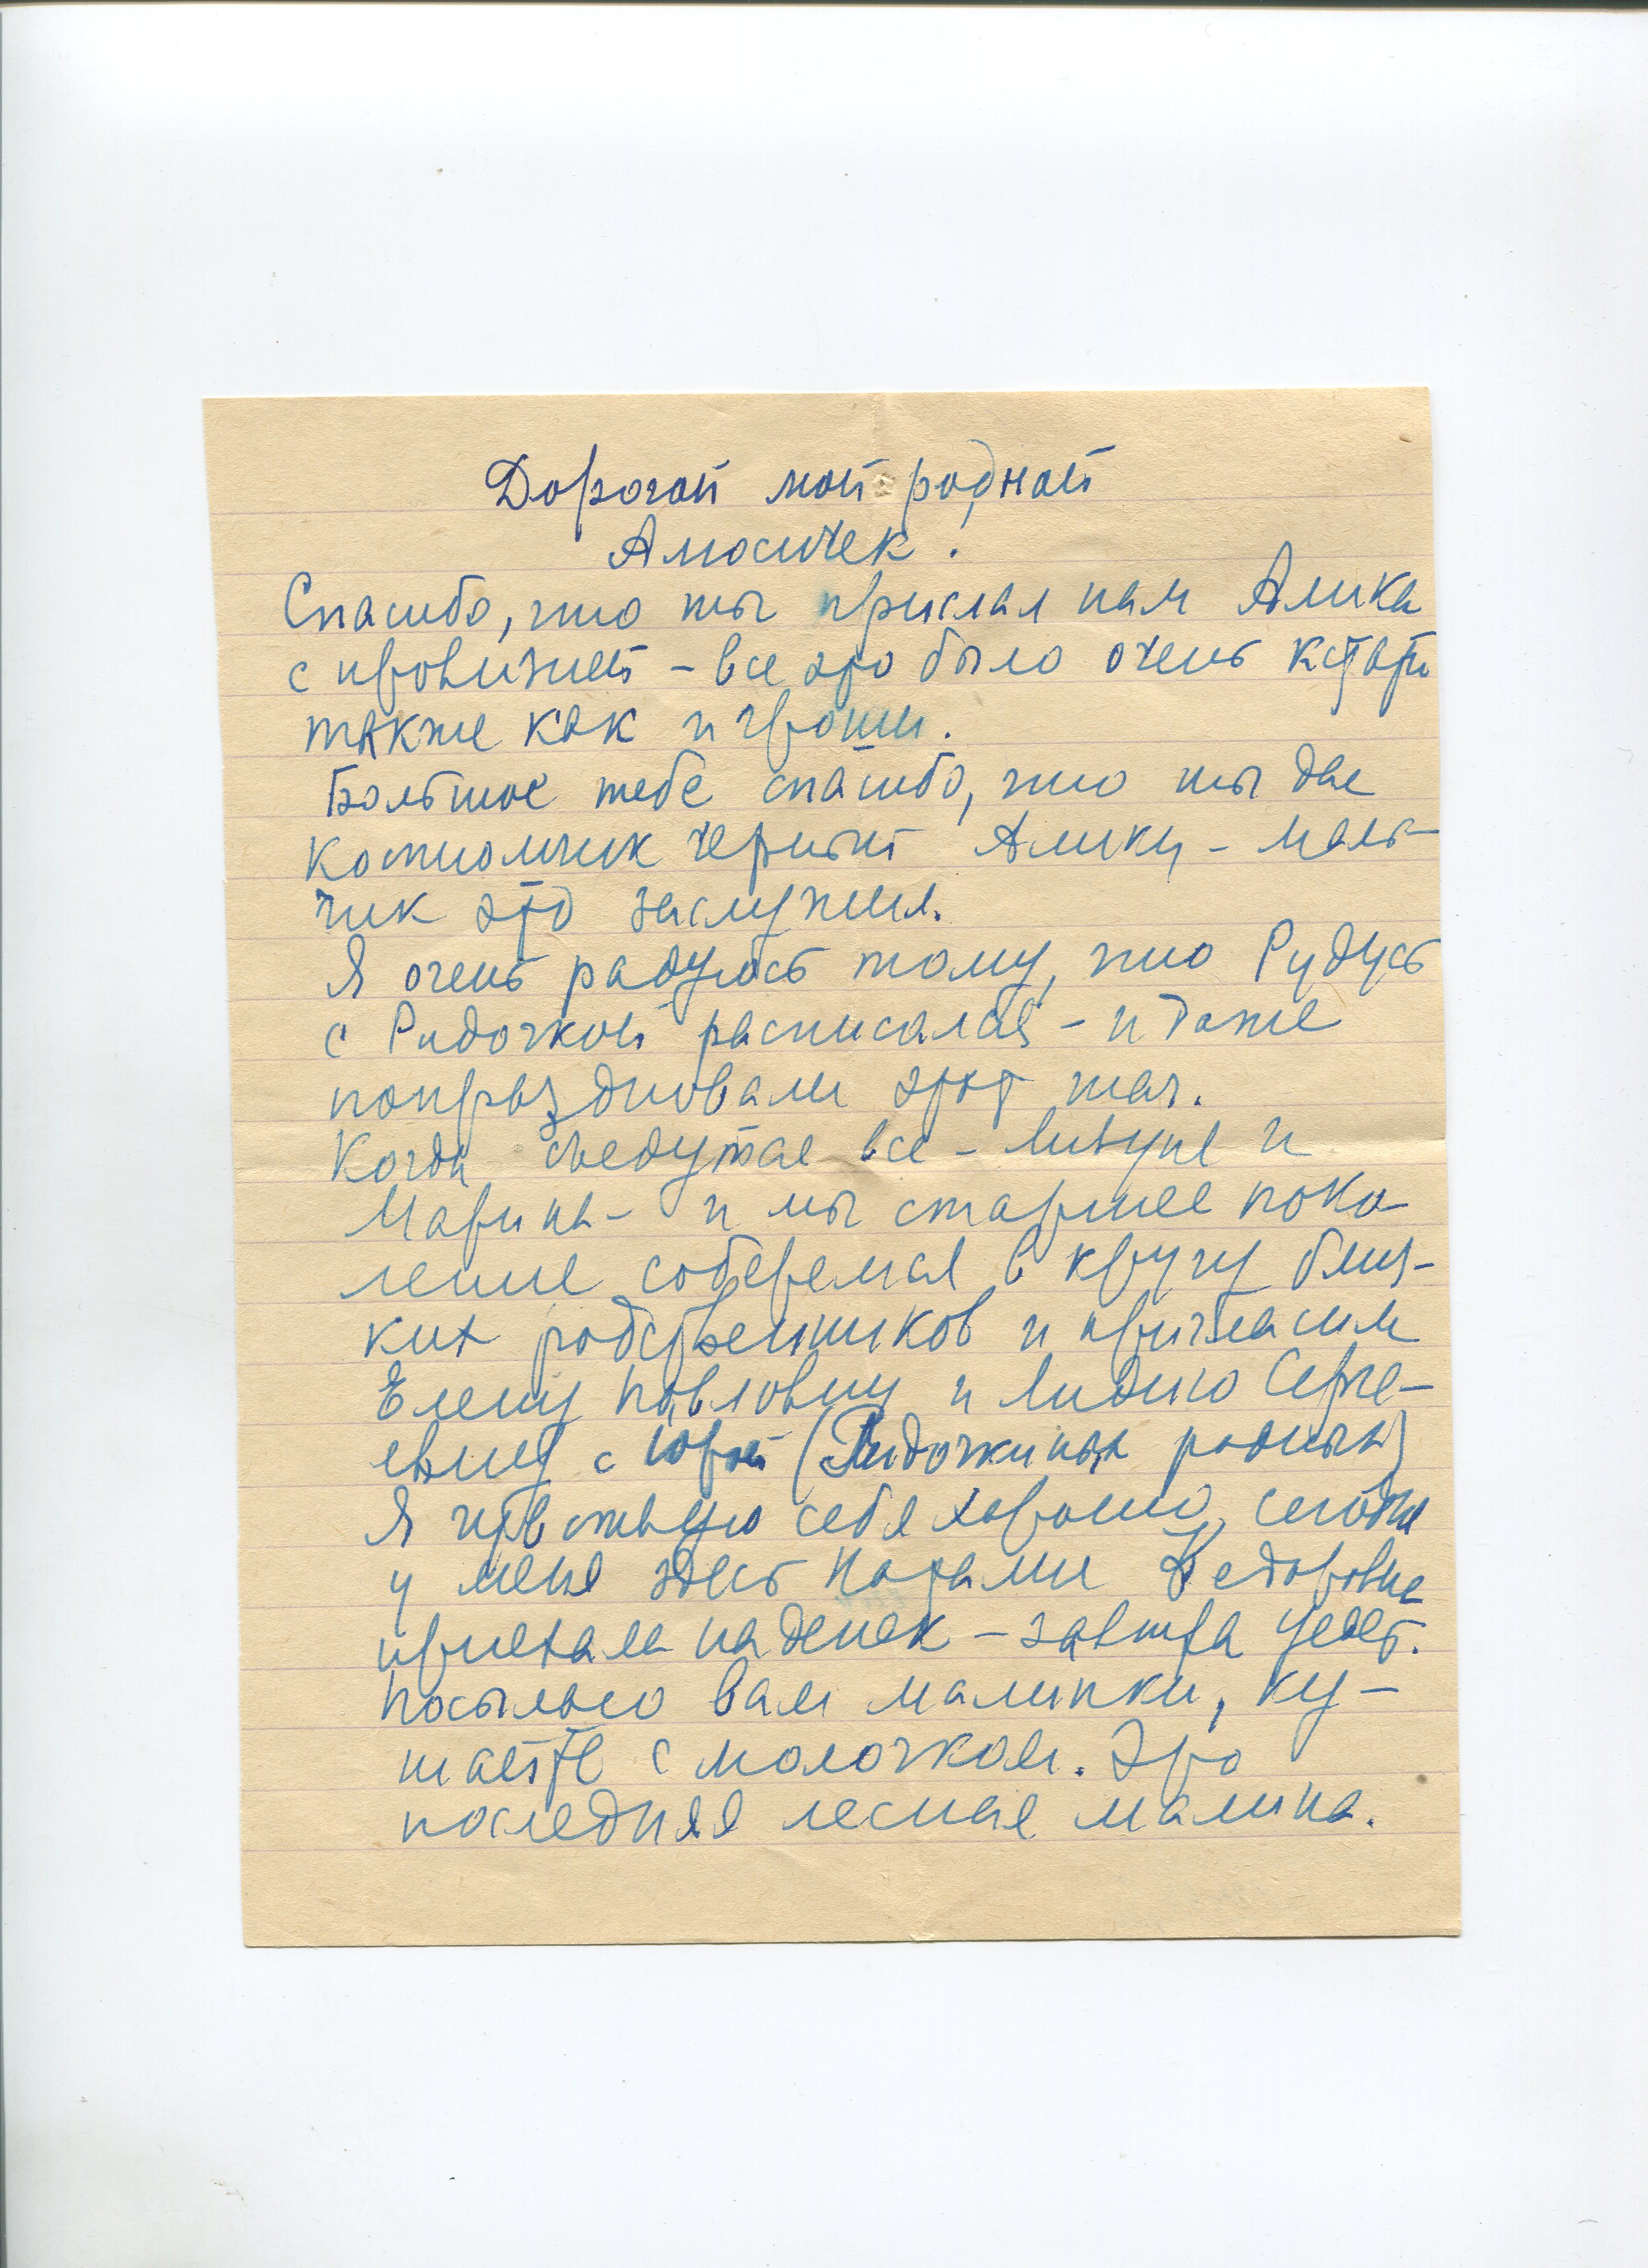 Дорогой мой родной
Амосичек!
Спасибо, что ты прислал нам Алика
с провизией - все это было очень кстати
также как и гроши.
Большое тебе спасибо, что ты дал
костюмчик черный Алику - маль-
чик это заслужил.
Я очень радуюсь тому, что Рудусь
с Ридочкой расписался - и даже
попраздновали этот шаг.
Когда съедутся все - Лизуня и
Марина - и мы старшее поко-
ление соберемся в кругу близ-
ких родственников и пригласим
Елену Павловну и Лидию Серге-
евну с Юрой (Ридочкиных родных)
Я чувствую себя хорошо, сегодня
у меня здесь Федоровна
приехала на денек - завтра уедет.
Посылаю вам малинки, ку-
шайте с молочком. Это
последняя лесная малина.